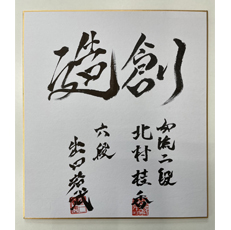 創造
女流二段
北村桂香
六段
出口若武